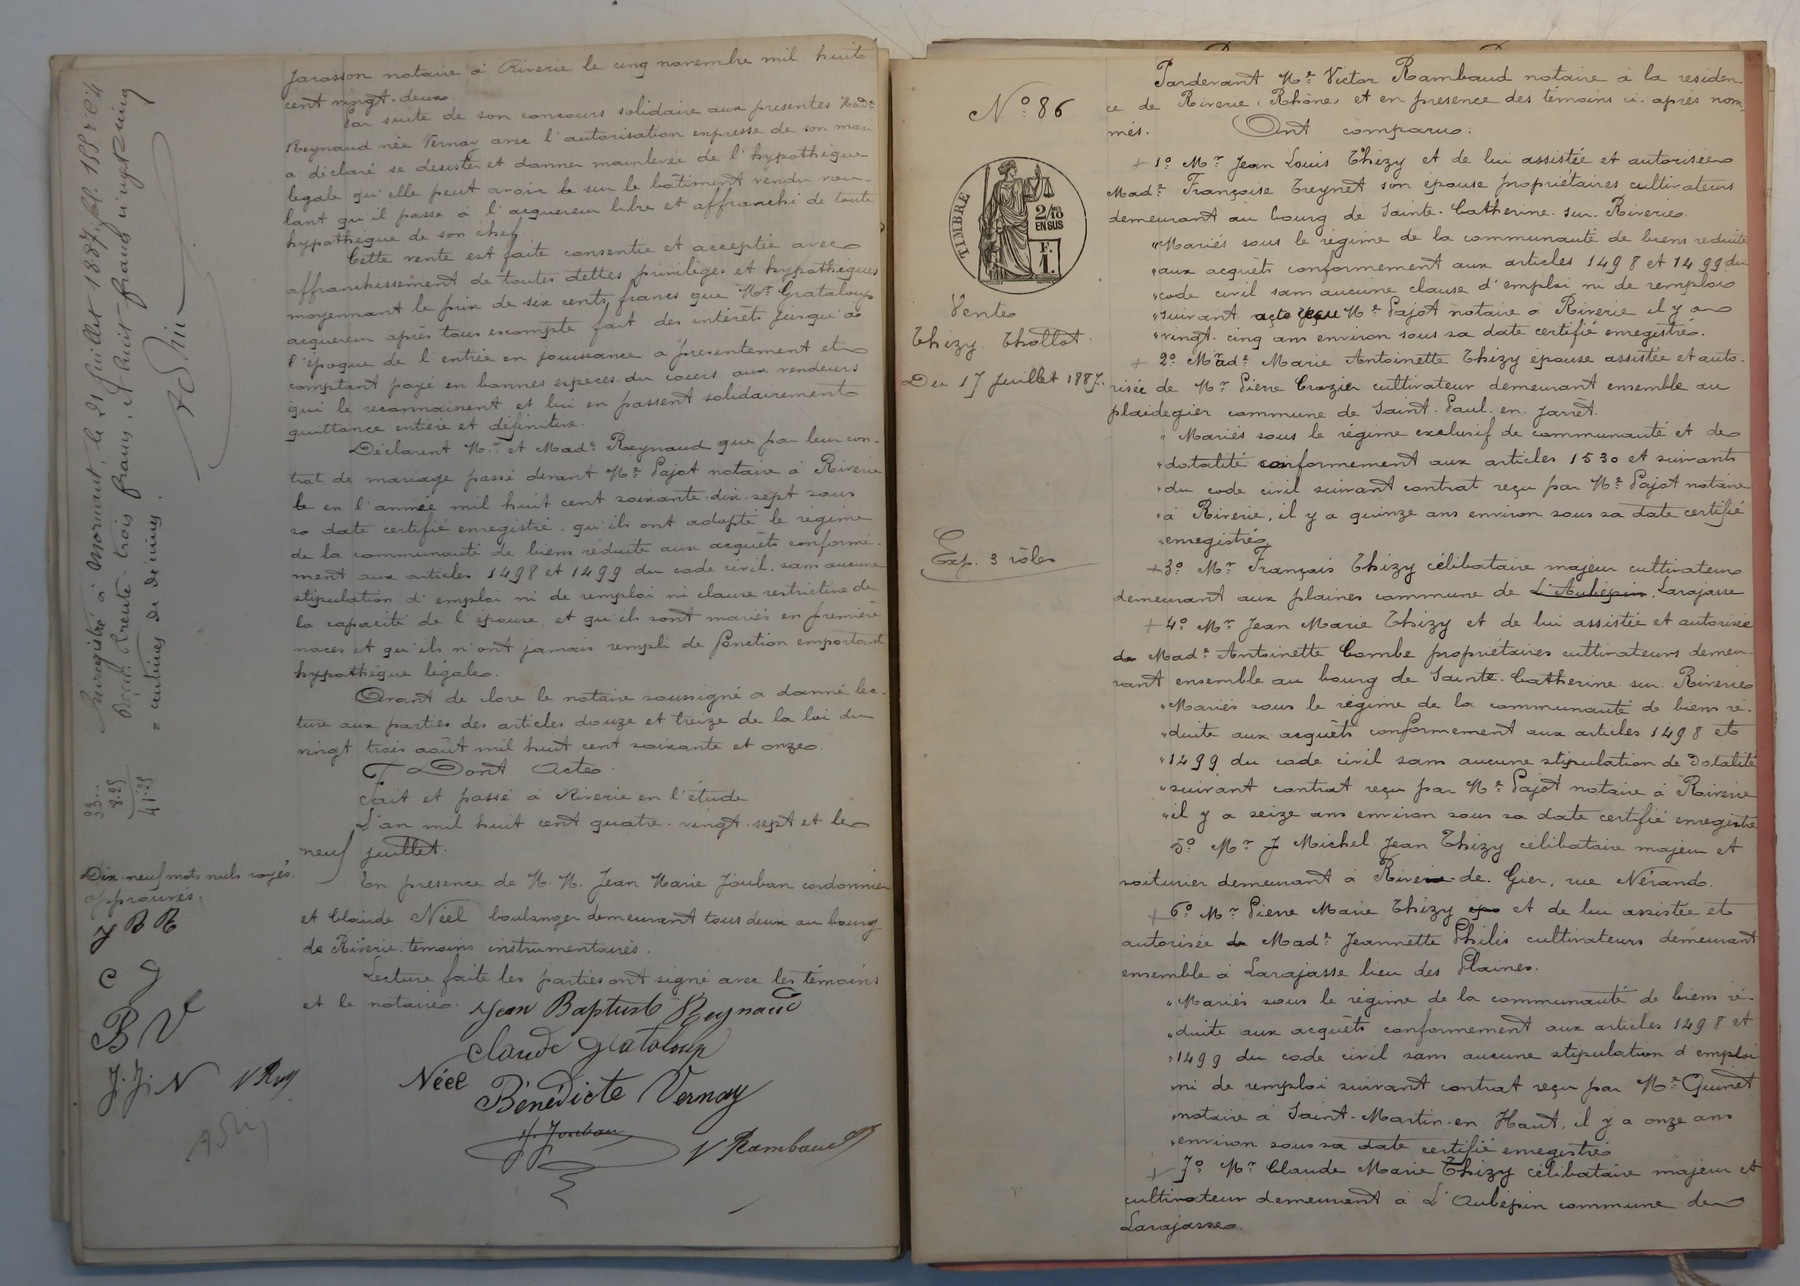 Jarosson notaire à Riverie le cinq novembre mil huit
cent vingt-deux.
Par suite de son concours solidaire aux présentes Madᵉ
Reynaud née Vernay avec l'autorisation expresse de son mari
a déclaré se désister et donner mainlevée de l'hypothèque
légale qu'elle peut avoir sur le bâtiment vendu vou-
lant qu'il passe à l'acquéreur libre et affranchi de toute
hypothèque de son chef.
Cette vente est faite consentie et acceptée avec
affranchissement de toutes dettes privilèges et hypothèques
moyennant le prix de six cents francs que Mʳ Grataloup
acquéreur après tous escompte fait des intérêts jusqu'à
l'époque de l'entrée en jouissance a présentement et
comptant payé en bonnes espèces du cours aux vendeurs
qui le reconnaissent et lui en passent solidairement
quittance entière et définitive.
Déclarent Mʳ et Madᵉ Reynaud que par leur con-
trat de mariage passé devant Mᵉ Pajot notaire à Riverie
le en l'année mil huit cent soixante-dix-sept sous
sa date certifié enregistré, qu'ils ont adopté le régime
de la communauté de biens réduite aux acquêts conformé-
ment aux articles 1498 et 1499 du code civil, sans aucune
stipulation d'emploi ni de remploi ni clause restrictive de
la capacité de l'épouse, et qu'ils sont mariés en première
noces et qu'ils n'ont jamais rempli de fonction emportant
hypothèque légale.
Avant de clore le notaire soussigné a donné lec-
ture aux parties des articles douze et treize de la loi du
vingt trois août mil huit cent soixante et onze.
Dont Acte.
Fait et passé à Riverie en l'étude
L'an mil huit cent quatre-vingt-sept et le
neuf juillet.
En présence de M. M. Jean Marie Jouban cordonnier
et Claude Néel boulanger demeurant tous deux au bourg
de Riverie témoins instrumentaires.
Lecture faite les parties ont signé avec les témoins
et le notaire.
Jean Baptiste Reynaud
Claude Grataloup
Néel
Bénédicte Vernay
J. Jouban
V Rambaud
Enregistré à Mornant, le 21 Juillet 1887, fol.
Reçu: Trente-trois francs, et huit francs vingt-cinq
centimes de décimes.
33..
8.25
41.25
Dix neuf mots nuls rayés
approuvés.
J B R
C G
B V
J. J. N
No 86
TIMBRE
2/10 EN SUS
F. 1.
Vente
Thizy Thollot.
Du 17 juillet 1887.
Exp. 3 rôles
Pardevant Mᵉ Victor Rambaud notaire à la résiden-
ce de Riverie (Rhône) et en présence des témoins ci-après nom-
més. Ont comparu:
+ 1º Mʳ Jean Louis Thizy et de lui assistée et autorisée
Madᵉ Françoise Treynet son épouse propriétaires cultivateurs
demeurant au bourg de Sainte-Catherine-sur-Riverie.
"Mariés sous le régime de la communauté de biens réduite
"aux acquêts conformement aux articles 1498 et 1499 du
"code civil sans aucune clause d'emploi ni de remploi
"suivant acte reçu Mᵉ Pajot notaire à Riverie il y a
"vingt-cinq ans environ sous sa date certifié enregistré.
+ 2º Madᵉ Marie Antoinette Thizy épouse assistée et auto-
risée de Mʳ Pierre Crozier cultivateur demeurant ensemble au
plaidegier commune de Saint-Paul-en-Jarrêt.
" Mariés sous le régime exclusif de communauté et de
"dotalité conformement aux articles 1530 et suivants
"du code civil suivant contrat reçu par Mᵉ Pajot notaire
"à Riverie, il y a quinze ans environ sous sa date certifié
"enregistré.
+ 3º Mʳ François Thizy célibataire majeur cultivateur
demeurant aux plaines commune de L'Aubépin Larajasse
+ 4º Mʳ Jean Marie Thizy et de lui assistée et autorisée
de Madᵉ Antoinette Combe propriétaires cultivateurs demeu-
rant ensemble au bourg de Sainte-Catherine-sur-Riverie
"Mariés sous le régime de la communauté de biens ré-
"duite aux acquêts conformement aux articles 1498 et
"1499 du code civil sans aucune stipulation de dotalité
"suivant contrat reçu par Mᵉ Pajot notaire à Riverie
"il y a seize ans environ sous sa date certifié enregistré
5º Mʳ J Michel Jean Thizy célibataire majeur et
voiturier demeurant à Rive-de-Gier, rue Nérand.
+ 6º Mʳ Pierre Marie Thizy et de lui assistée et
autorisée de Madᵉ Jeannette Philis cultivateurs demeurant
ensemble à Larajasse lieu des Plaines.
"Mariés sous le régime de la communauté de biens ré-
"duite aux acquêts conformement aux articles 1498 et
"1499 du code civil sans aucune stipulation d'emploi
"ni de remploi suivant contrat reçu par Mᵉ Guinet
"notaire à Saint-Martin-en-Haut, il y a onze ans
"environ sous sa date certifié enregistré
+ 7º Mʳ Claude Marie Thizy célibataire majeur et
cultivateur demeurant à L'Aubépin commune de
Larajasse.